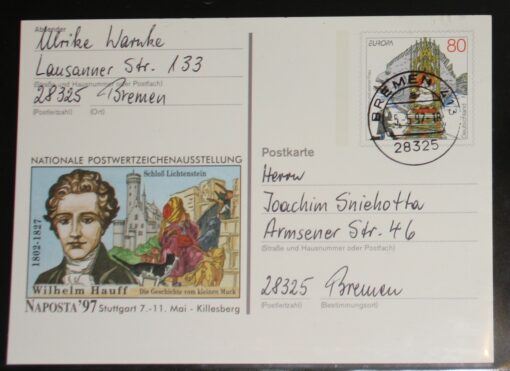 Absender
Ulrike Warnke
Lausanner Str. 133
(Straße und Hausnummer oder Postfach)
28325 Bremen
(Postleitzahl) (Ort)
EUROPA 80
Deutschland
BREMEN 41
28325
NATIONALE POSTWERTZEICHENAUSSTELLUNG
Schloß Lichtenstein
1802-1827
Wilhelm Hauff
Die Geschichte vom kleinen Muck
NAPOSTA '97 Stuttgart 7.-11. Mai - Killesberg
Postkarte
Herrn
Joachim Sniehotta
Armsener Str. 46
(Straße und Hausnummer oder Postfach)
28325 Bremen
(Postleitzahl) (Bestimmungsort)